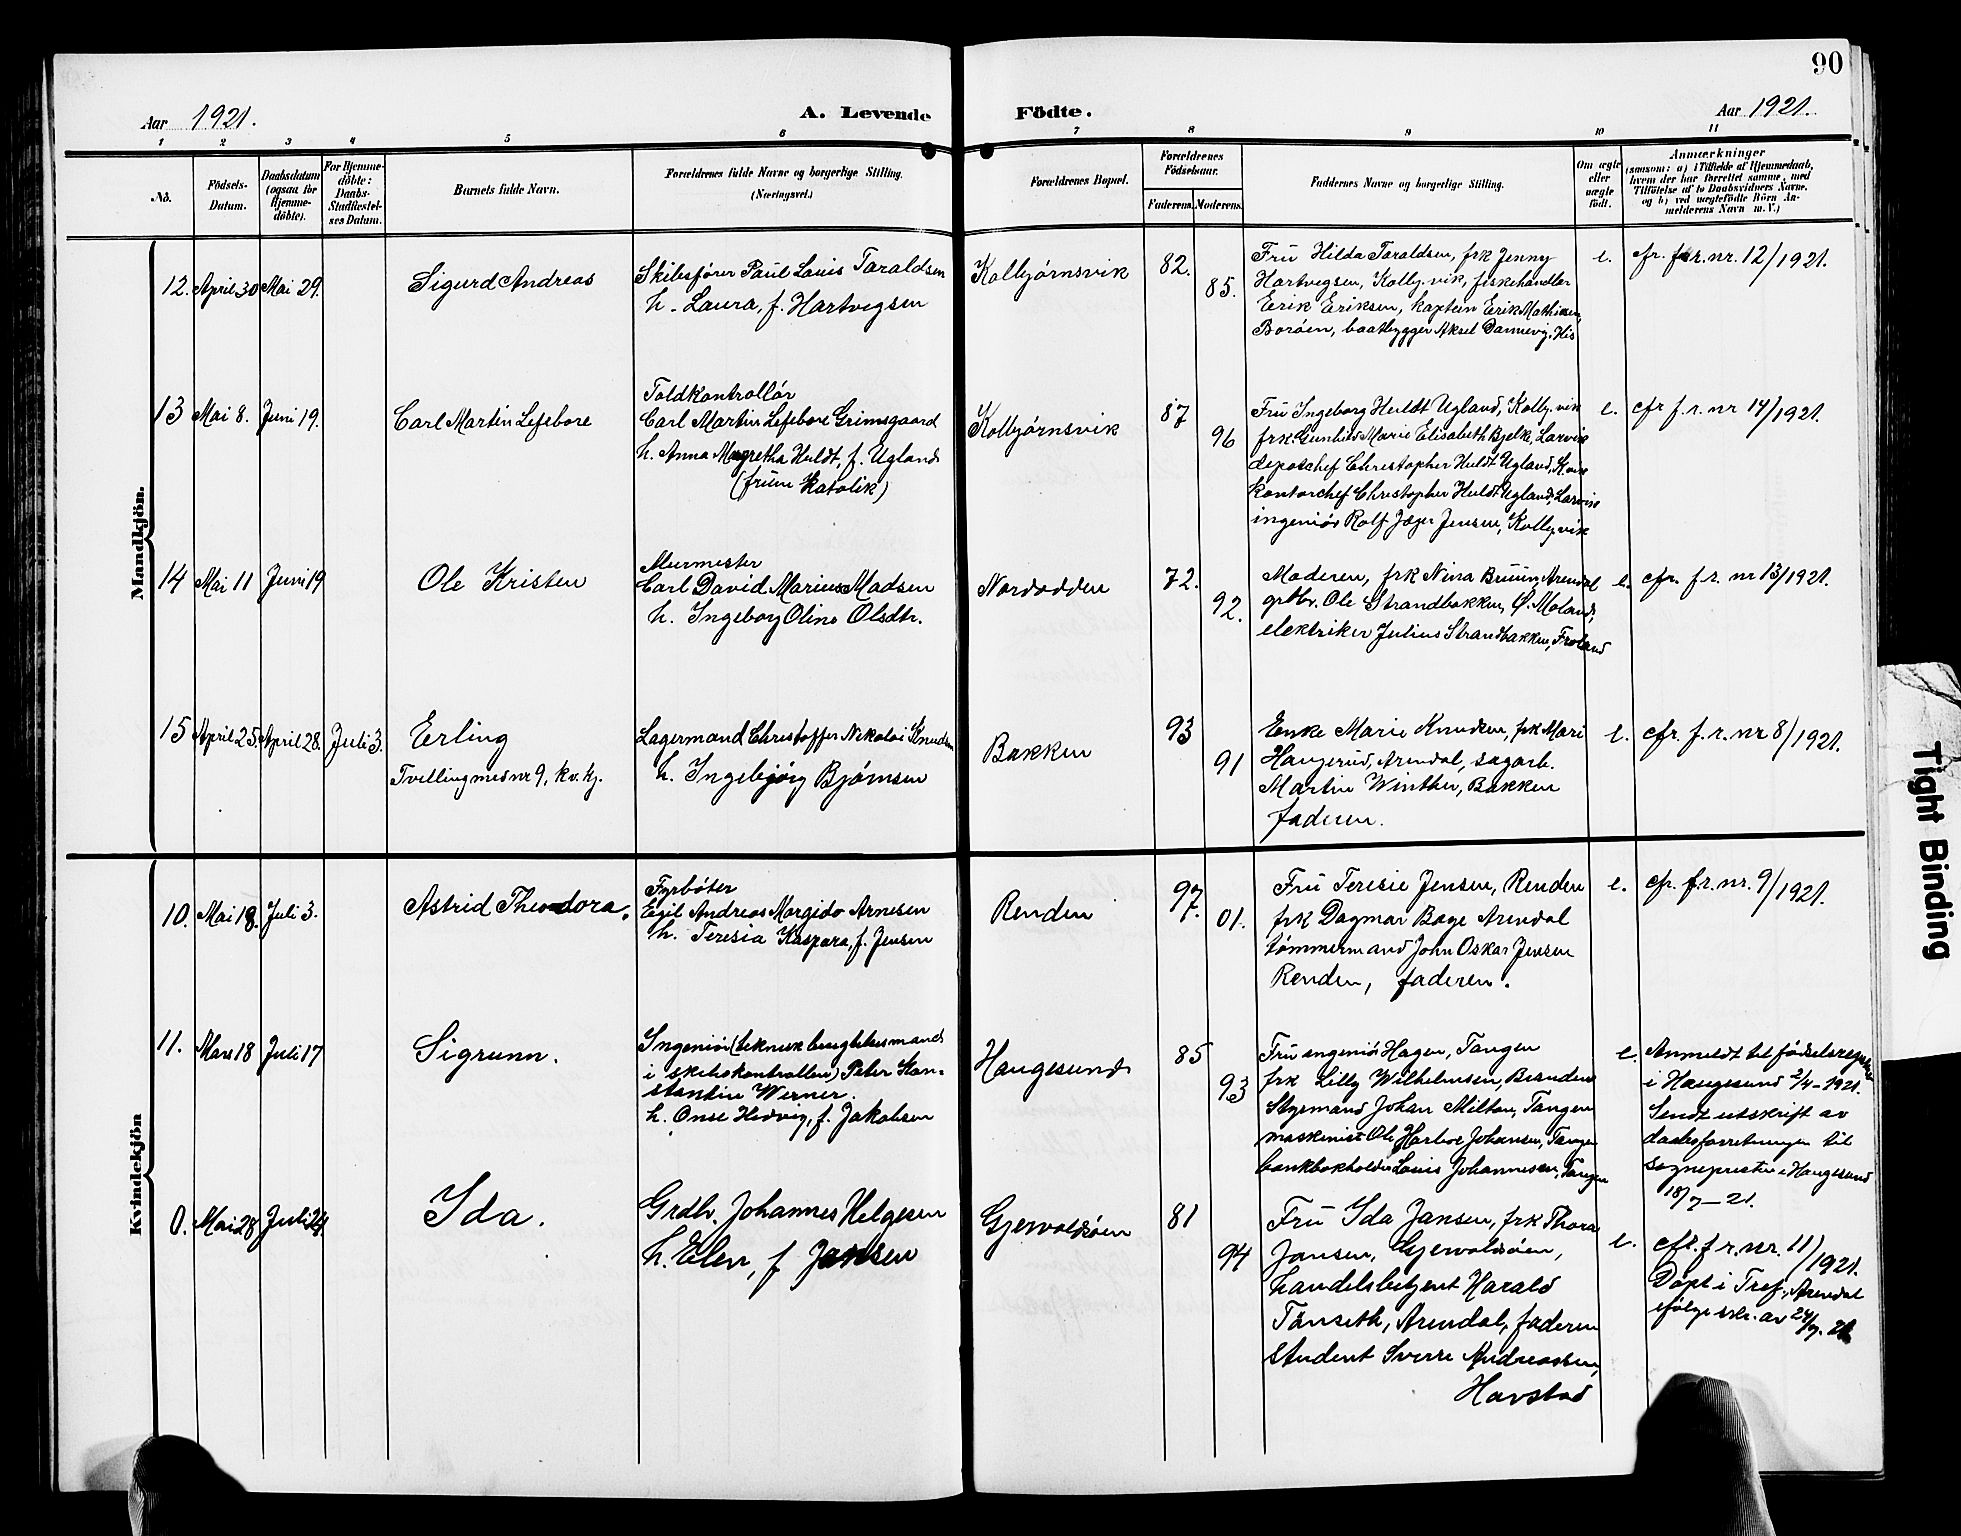 90
Aar 1921.
A. Levende Födte.
Aar 1921.
1 2 3 4 5 6 7 8 9 10 11
No.
Födsels-Datum.
Daabsdatum (ogsaa for Hjemme-döbte).
For Hjemme-döbte: Daabs-Stadfæstelses Datum.
Barnets fulde Navn.
Forældrenes fulde Navne og borgerlige Stilling.
(Næringsvei.)
Forældrenes Bopæl.
Forældrenes Födselsaar.
Faderens. Moderens.
Faddernes Navne og borgerlige Stilling.
Om ægte eller uægte födt.
Anmærkninger
(saasom: a) i Tilfælde af Hjemmedaab,
hvem der har forrettet samme, med
Tilföielse af to Daabsvidners Navne.
og b) ved uægtefödte Börn An-
melderens Navn m. V.)
Mandkjön.
12. April 30 Mai 29. Sigurd Andreas
Skibsfører Paul Louis Taraldsen
h. Laura, f. Hartvigsen
Kolbjørnsvik 82. 85.
Fru Hilda Taraldsen, frk Jenny
Hartvigsen, Kolbj.vik, fiskehandler
Erik Eriksen, kaptein Erik Mathisen,
Borøen, baatbygger Aksel Dannevig, His
e. cfr. f.r. nr. 12/1921.
13 Mai 8. Juni 19. Carl Martin Lefebore
Toldkontrollør
Carl Martin Lefebore Grimsgaard
h. Anna Magretha Huldt, f. Ugland
(frue katolik)
Kolbjørnsvik 87 96
Fru Ingeborg Huldt Ugland, Kolbj.vik
frk Gunhild Marie Elisabeth Bjelk, Larvik
depotchef Christopher Huldt Ugland,
kontorchef Christopher Huldt Ugland, Larvik
ingeniør Rolf Jæger Jensen, Kolbj.vik
e. cfr f.r. nr 14/1921.
14 Mai 11 Juni 19 Ole Kristen
Murmester
Carl David Marius Madsen
h. Ingeborg Oline Olsdtr.
Nordodden 72. 92.
Moderen, frk Nina Bruun, Arendal
grbr. Ole Strandbakken, Ø. Moland,
elektriker Julius Strandbakken, Froland
e. cfr. f.r. nr 13/1921.
15 April 25. April 28. Juli 3. Erling
Tvilling med nr 9, kv. kj.
Lagermand Christoffer Nikolai Knudsen
h. Ingebjørg Bjørnsen
Bakken 93 91
Enke Marie Knudsen, frk Mari
Haugerud, Arendal, sagarb.
Martin Winther, Bakken
faderen.
e. cfr. f.r. nr 8/1921.
Kvindekjön
10. Mai 18. Juli 3. Astrid Theodora.
Fyrbøter
Egil Andreas Margido Arnesen
h. Teresia Kaspara, f. Jensen
Renden 97. 01.
Fru Teresie Jensen, Renden
frk Dagmar Boye Arendal
tømmermand John Oskar Jensen
Renden, faderen.
e. cfr. f.r. nr. 9/1921.
11. Mars 18 Juli 17 Sigrunn.
Ingeniør (teknisk
i skibskontrollen) Peter Kon-
stantin Werner.
h. Onse Hedvig, f. Jakobsen
Haugesund 85 93
Fru ingeniør Hagen, Tangen
frk Lilly Wilhelmsen, Branden
Styrmand Johan Milton, Tangen
maskinist Ole Harboe Johansen, Tangen
bankbokholder Louis Johannesen, Tangen
e. Anmeldt til fødselsregistret
i Haugesund 2/4-1921.
Sendt utskrift av
daabsforretningen til
sognepresten i Haugesund
18/7-21.
0. Mai 28 Juli 24. Ida.
Grdbr. Johannes Helgesen
h. Elen, f. Jansen
Gjervoldsøen 81 94
Fru Ida Jansen, frk Thora
Jansen, Gjervoldsøien,
handelsbetjent Harald
Tånseth, Arendal, faderen
student Sverre Andreassen,
Havstad
e. cfr. f.r. nr. 11/1921.
Døpt i Tref., Arendal
ifølge skr. av 24/7. 21
Tight Binding